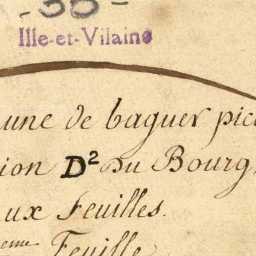 - 35 -
Ille-et-Vilaine
une de baguer pic
ion D² Du Bourg
ux Feuilles.
eme Feuille